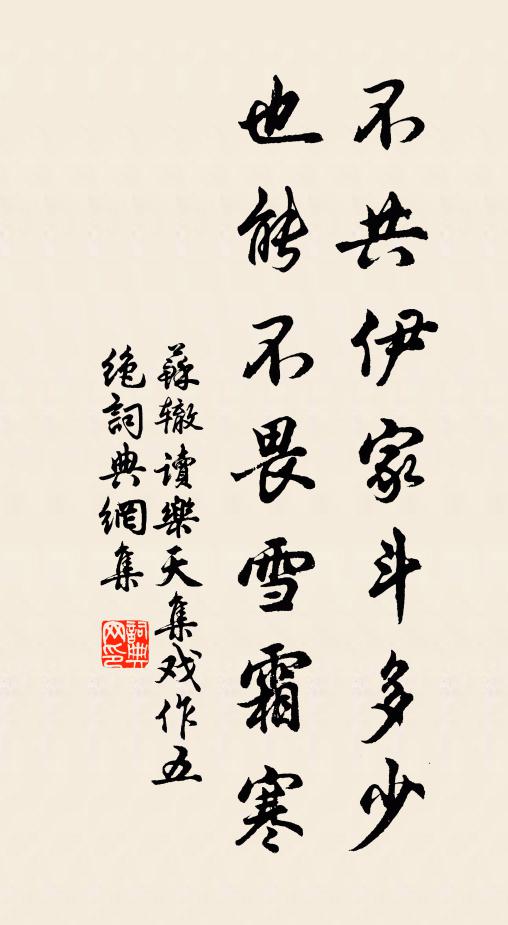 不共伊家斗多少
也能不畏雪霜寒
蘇辙读樂天集戏作五
绝詞典網集
詞典网印